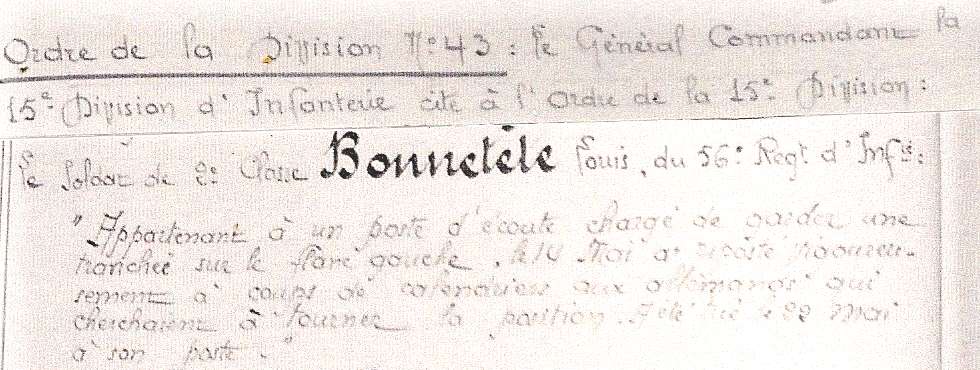 Ordre de la Division N° 43 : le Général Commandant la
15e Division d'Infanterie cite à l'Ordre de la 15e Division :
le Soldat de 2e Classe Bonnetête Louis, du 56e Regt d'Infie :
"Appartenant à un poste d'écoute chargé de garder une
tranchée sur le flanc gauche, le 14 Mai a riposté vigoureu-
sement à coups de aux allemands qui
cherchaient à tourner la position. A été tué le 22 mai
à son poste."